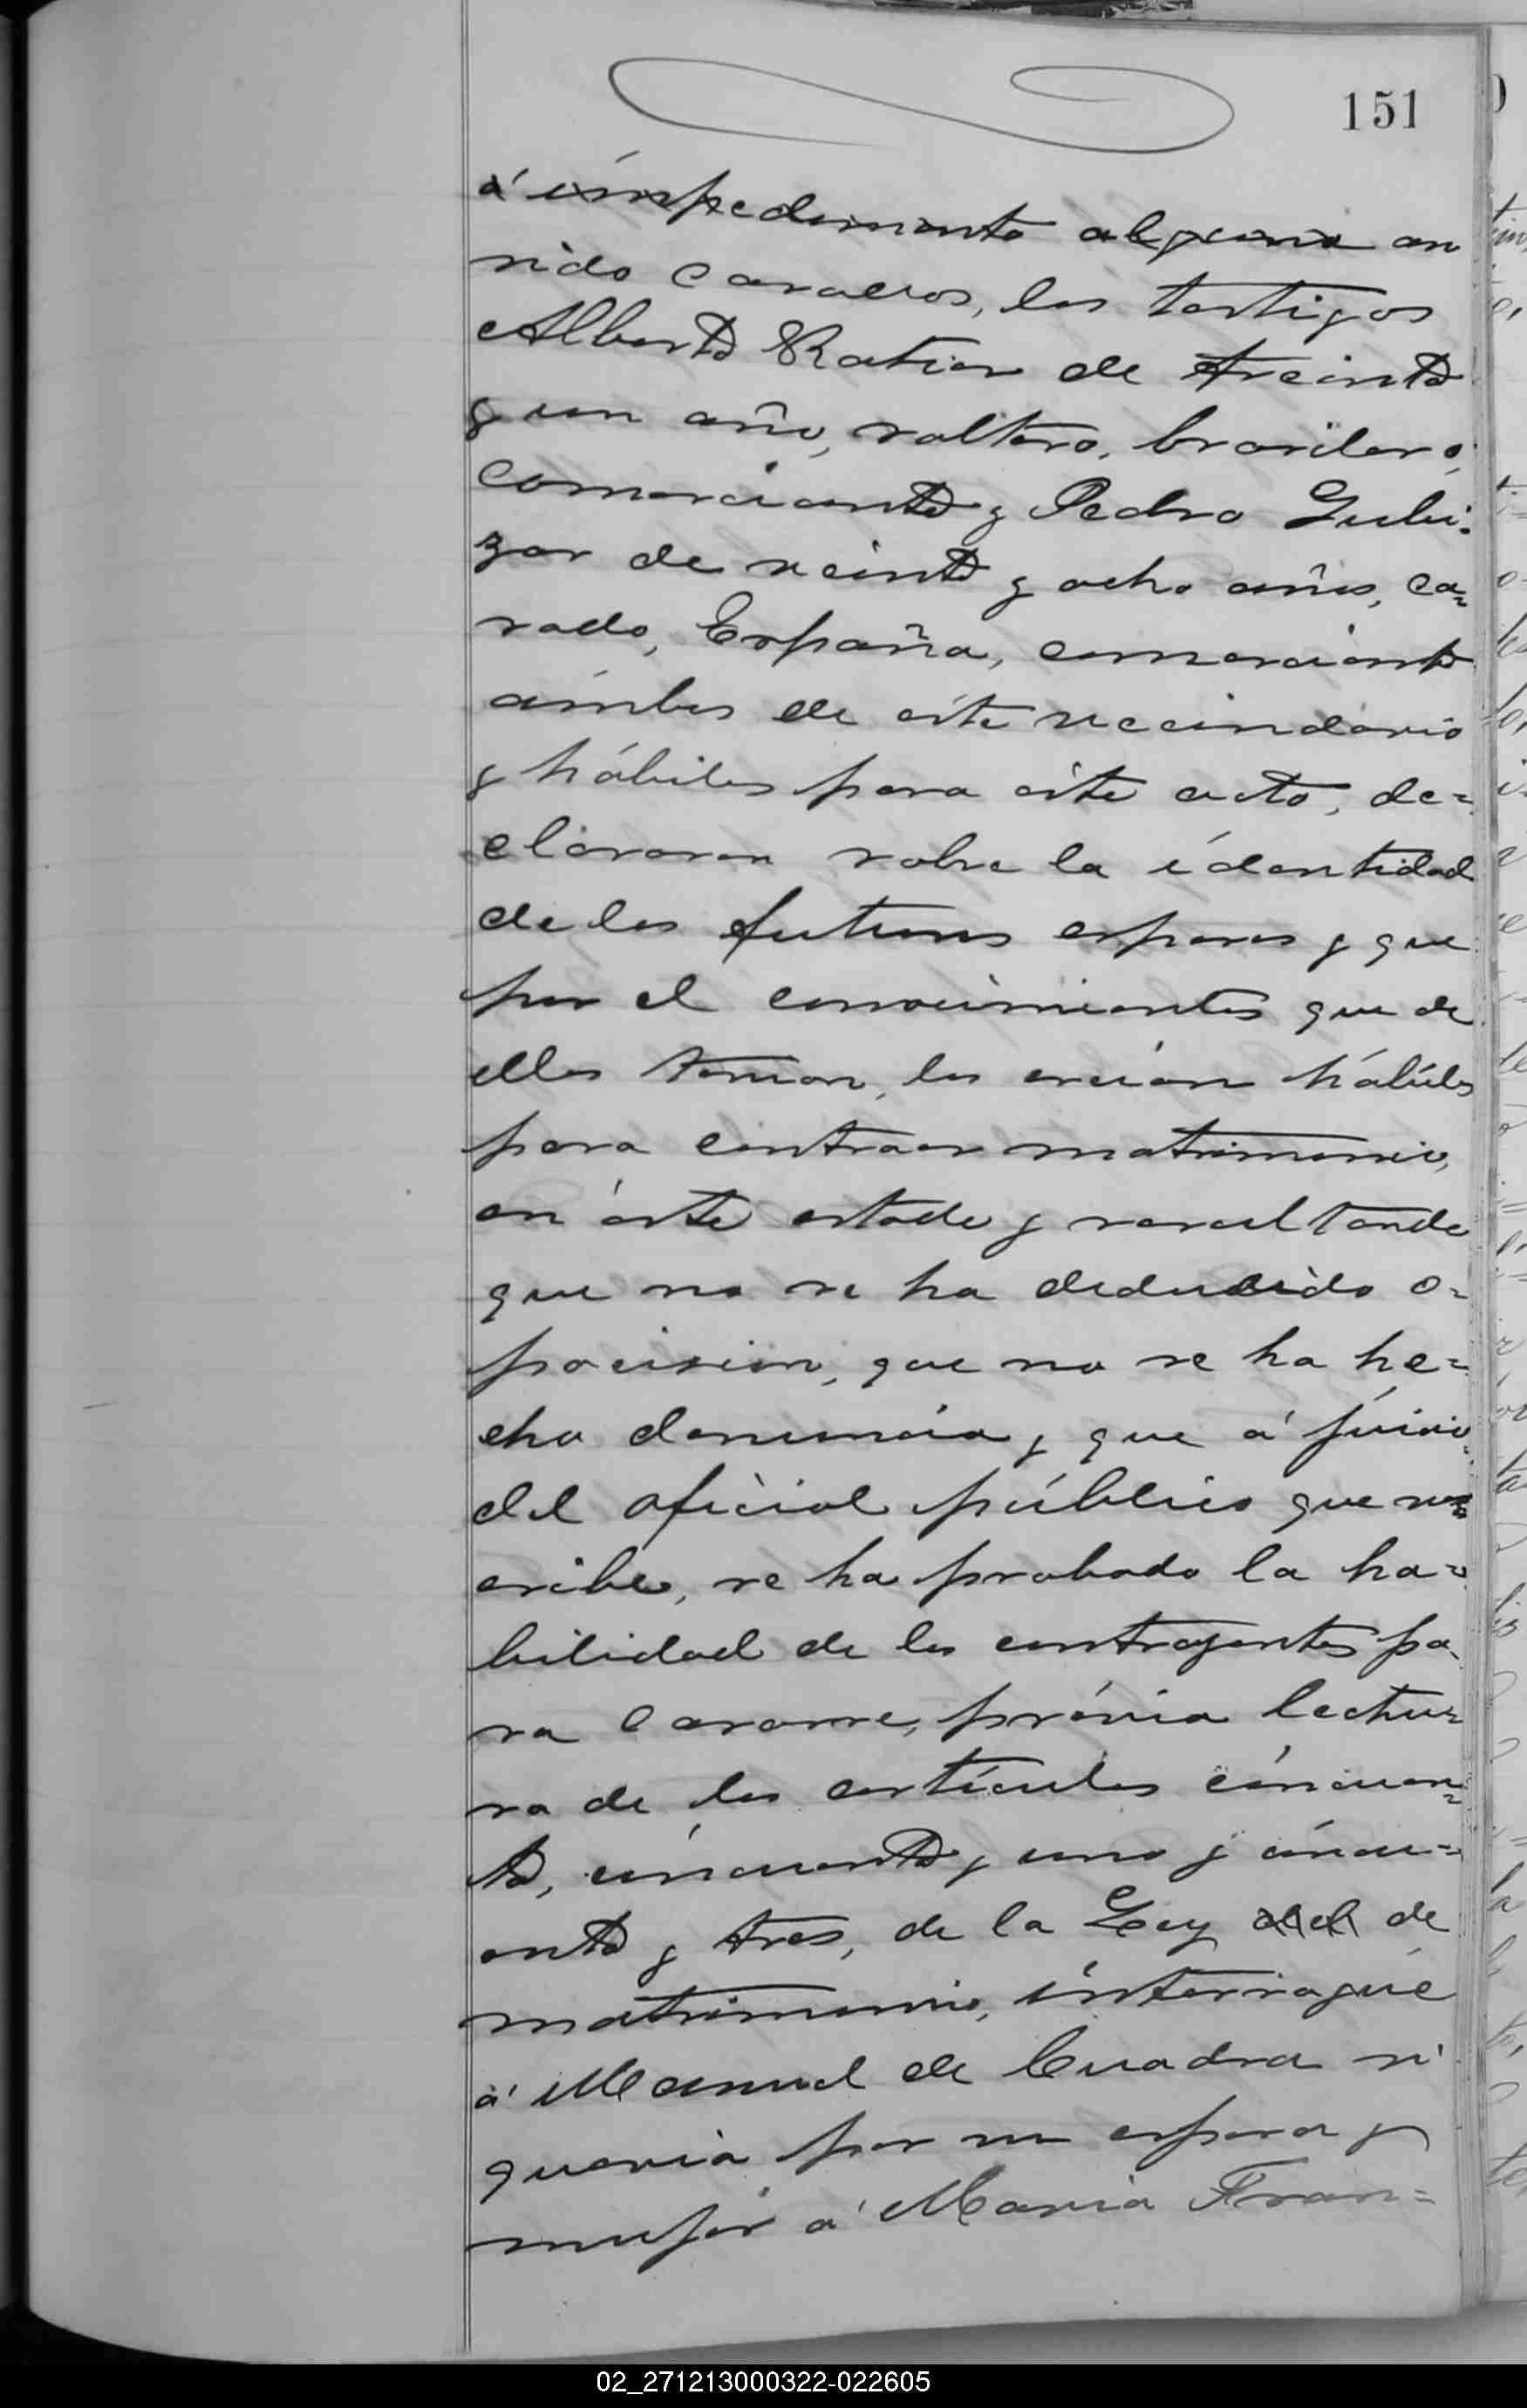 151
á impedimento alguno en
sido casarlos, los testigos
Alberto Ratier de treinta
y un año, soltero, brasilero,
comerciante y Pedro Gubi=
zar de veinte y ocho años, ca=
sado, España, comerciante
ámbos de éste vecindario
y hábiles para éste acto, de=
clararon sobre la identidad
de los futuros esposos y que
por el conocimientos que de
ellos tenian, los creian hábiles
para contraer matrimonio,
en éste estado y resultando
que no se ha deducido o=
pocision, que no se ha he=
cho denuncia y que á juicio
del oficial público que sus=
cribe, se ha probado la ha=
bilidad de los contrayentes pa
ra casarse, prévia lectu=
ra de los artículos cincuen=
ta, cincuenta y uno y cincu=
enta y tres, de la Ley del de
matrimonio, interrogué
á Manuel de Cuadra si
queria por su esposa y
mujer á Maria Fran=
02_271213000322-022605